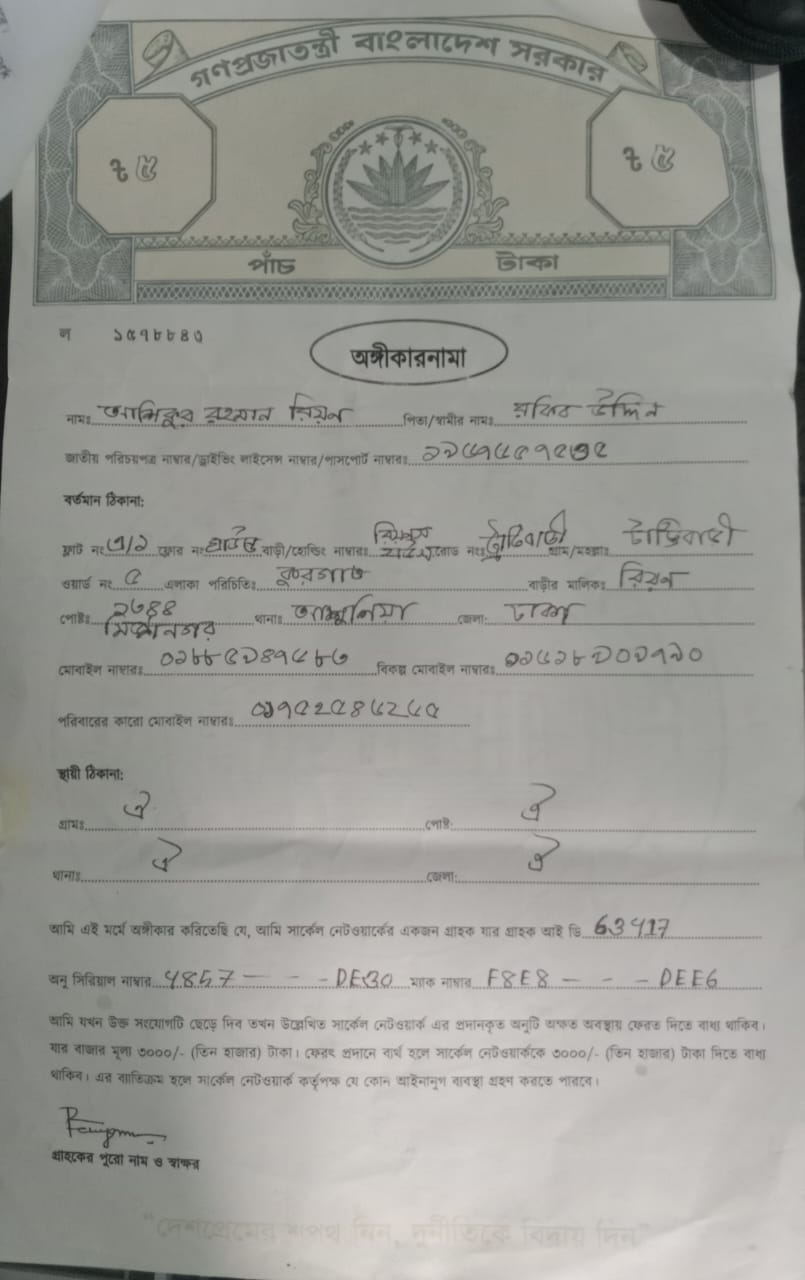 গণপ্রজাতন্ত্রী বাংলাদেশ সরকার
৳ ৫
৳ ৫
পাঁচ টাকা
ল ১৫৭৮৮৪৩
অঙ্গীকারনামা
নামঃ আশিকুর রহমান রিয়ন পিতা/স্বামীর নামঃ রফিক উদ্দিন
জাতীয় পরিচয়পত্র নাম্বার/ড্রাইভিং লাইসেন্স নাম্বার/পাসপোর্ট নাম্বারঃ
বর্তমান ঠিকানা:
ফ্লাট নং ৩/১ ফ্লোর নং বাড়ী/হোল্ডিং নাম্বারঃ রোড নংঃ গ্রাম/মহল্লাঃ
ওয়ার্ড নং ৫ এলাকা পরিচিতিঃ বাড়ীর মালিকঃ রিয়ন
পোষ্টঃ ১৩৪৪ থানাঃ আশুলিয়া জেলা: ঢাকা
মোবাইল নাম্বারঃ বিকল্প মোবাইল নাম্বারঃ
পরিবারের কারো মোবাইল নাম্বারঃ
স্থায়ী ঠিকানা:
গ্রামঃ ঐ পোষ্ট: ঐ
থানাঃ ঐ জেলা: ঐ
আমি এই মর্মে অঙ্গীকার করিতেছি যে, আমি সার্কেল নেটওয়ার্কের একজন গ্রাহক যার গ্রাহক আই ডি 63417
অনু সিরিয়াল নাম্বার 4857 - - - DE30 ম্যাক নাম্বার F8E8 - - - DEE6
আমি যখন উক্ত সংযোগটি ছেড়ে দিব তখন উল্লেখিত সার্কেল নেটওয়ার্ক এর প্রদানকৃত অনুটি অক্ষত অবস্থায় ফেরত দিতে বাধ্য থাকিব।
যার বাজার মূল্য ৩০০০/- (তিন হাজার) টাকা। ফেরৎ প্রদানে ব্যর্থ হলে সার্কেল নেটওয়ার্ককে ৩০০০/- (তিন হাজার) টাকা দিতে বাধ্য
থাকিব। এর ব্যতিক্রম হলে সার্কেল নেটওয়ার্ক কর্তৃপক্ষ যে কোন আইনানুগ ব্যবস্থা গ্রহণ করতে পারবে।
গ্রাহকের পুরো নাম ও স্বাক্ষর
"দেশপ্রেমের শপথ নিন, দুর্নীতিকে বিদায় দিন"